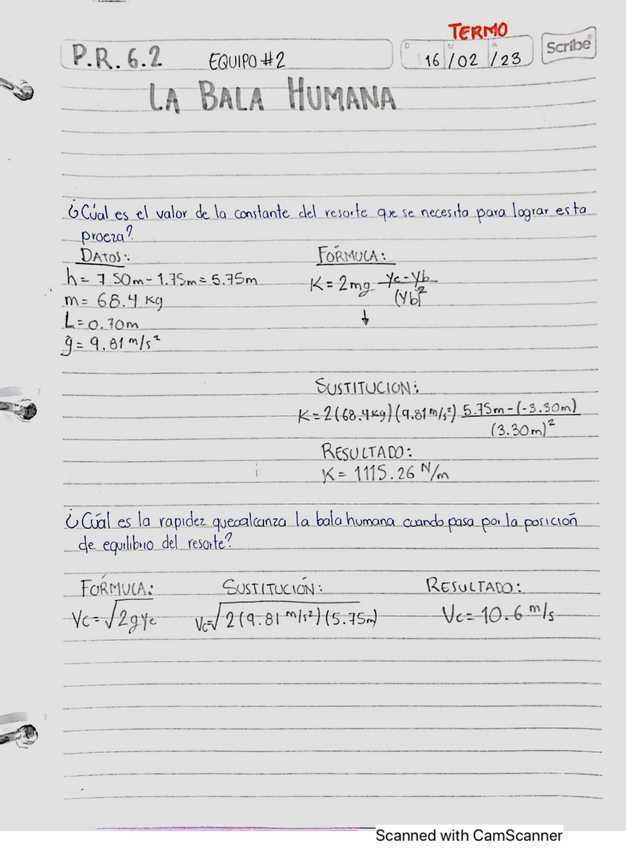 TERMO
P.R. 6.2 EQUIPO #2 D M A 16/02/23 Scribe
LA BALA HUMANA
¿Cúal es el valor de la constante del resorte que se necesita para lograr esta
proeza?
DATOS:
h= 7 50m-1.75m= 5.75m
m= 68.4 Kg
L= 0.70m
g= 9.81 m/s²
FÓRMULA:
K= 2mg (Yc-Yb)/(Yb)²
↓
SUSTITUCION:
K= 2(68.4Kg)(9.81 m/s²) (5.75m-(-3.30m))/(3.30m)²
RESULTADO:
K= 1115.26 N/m
¿Cúal es la rapidez que alcanza la bala humana cuando pasa por la posición
de equilibrio del resorte?
FÓRMULA: SUSTITUCIÓN: RESULTADO:
Vc=√2gYc Vc=√2(9.81 m/s²)(5.75m) Vc= 10.6 m/s
Scanned with CamScanner